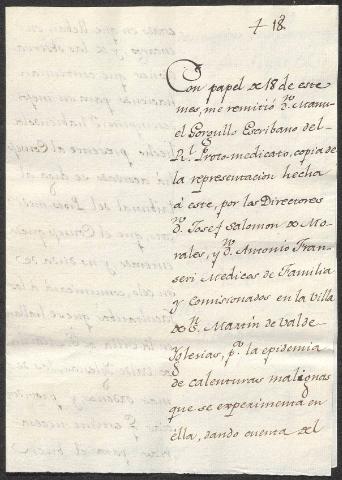 + 18.
Con papel de 18 de este
mes, me remitió Dn. Manu-
el Gorgullo Escribano del
Rl. Proto-medicato, copia de
la representacion hecha
á este, por las Directores
Dn. Josef Salomon de Mo-
rales, y Dn. Antonio Fran-
seri Medicos de Familia
y Comisionados en la Villa
de Sn. Martin de Valde
Iglesias, pr. la epidemia
de calenturas malignas
que se experimenta en
élla, dando cuenta del